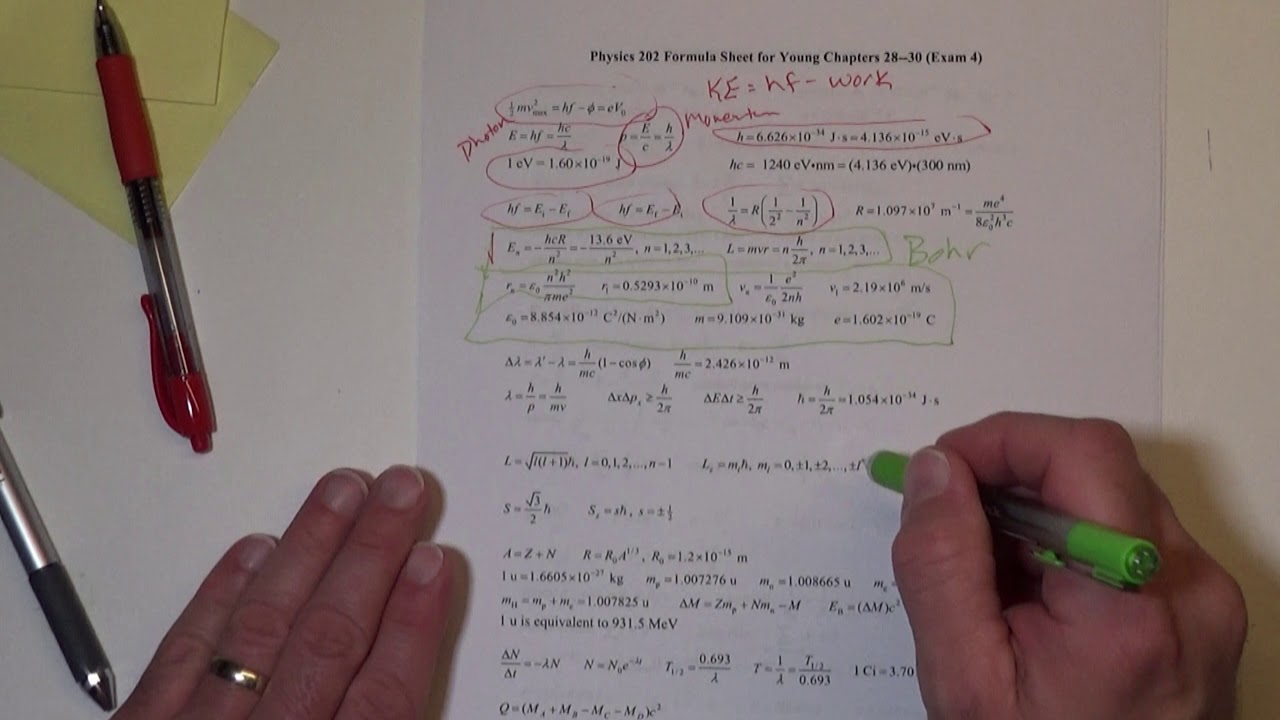 Physics 202 Formula Sheet for Young Chapters 28--30 (Exam 4)
KE = hf - work
½mv²max = hf − ϕ = eV₀
Momentum
Photon
E = hf = hc/λ
p = E/c = h/λ
h = 6.626×10⁻³⁴ J·s = 4.136×10⁻¹⁵ eV·s
1 eV = 1.60×10⁻¹⁹ J
hc = 1240 eV•nm = (4.136 eV)•(300 nm)
hf = Eᵢ − E_f hf = E_f − Eᵢ 1/λ = R(1/2² − 1/n²) R = 1.097×10⁷ m⁻¹ = me⁴/8ε₀²h³c
Eₙ = −hcR/n² = −13.6 eV/n², n = 1,2,3,... L = mvr = n h/2π, n = 1,2,3,... Bohr
rₙ = ε₀ n²h²/πme² r₁ = 0.5293×10⁻¹⁰ m vₙ = 1/ε₀ e²/2nh v₁ = 2.19×10⁶ m/s
ε₀ = 8.854×10⁻¹² C²/(N·m²) m = 9.109×10⁻³¹ kg e = 1.602×10⁻¹⁹ C
Δλ = λ′ − λ = h/mc (1−cosϕ) h/mc = 2.426×10⁻¹² m
λ = h/p = h/mv ΔxΔpₓ ≥ h/2π ΔEΔt ≥ h/2π ħ = h/2π = 1.054×10⁻³⁴ J·s
L = √l(l+1)ħ, l = 0,1,2,...,n−1 L_z = m_lħ, m_l = 0,±1,±2,...,±l
S = √3/2 ħ S_z = sħ, s = ±½
A = Z + N R = R₀A^1/3, R₀ = 1.2×10⁻¹⁵ m
1 u = 1.6605×10⁻²⁷ kg m_p = 1.007276 u m_n = 1.008665 u m_e
m_H = m_p + m_e = 1.007825 u ΔM = Zm_p + Nm_n − M E_B = (ΔM)c²
1 u is equivalent to 931.5 MeV
ΔN/Δt = −λN N = N₀e^−λt T_1/2 = 0.693/λ T = 1/λ = T_1/2/0.693 1 Ci = 3.70
Q = (M_A + M_B − M_C − M_D)c²